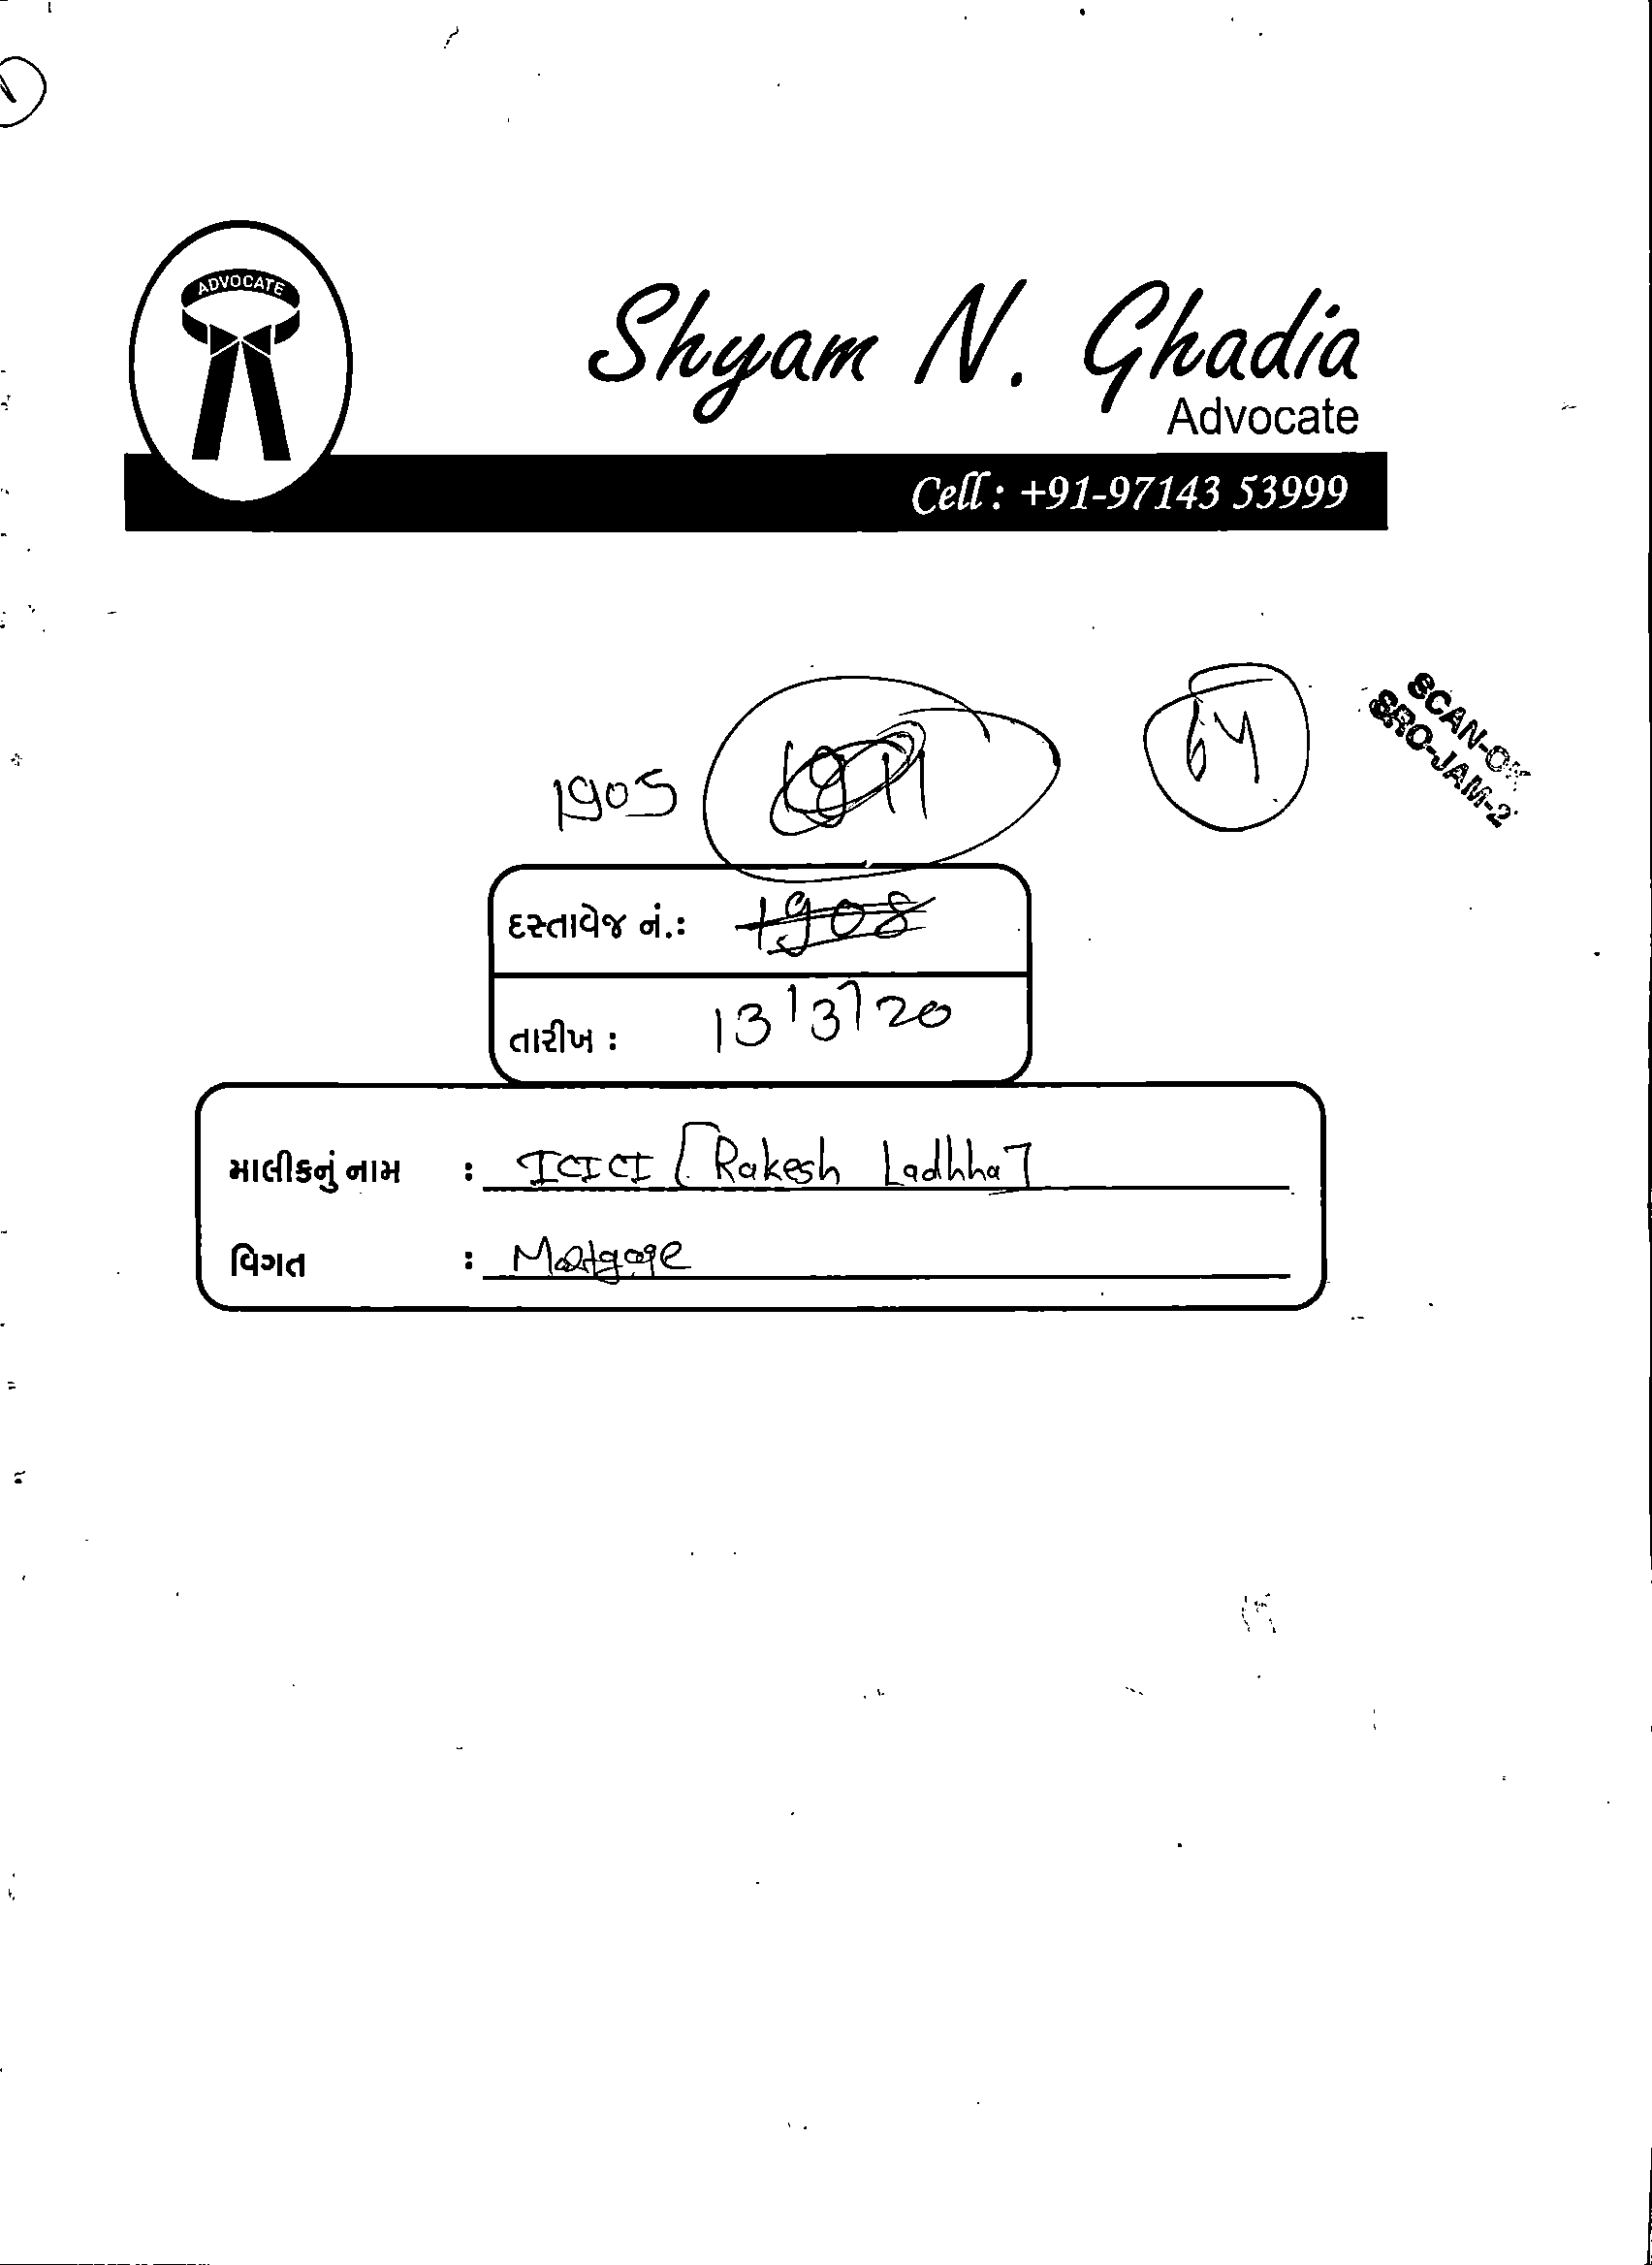 ADVOCATE
Shyam N. Ghadia
Advocate
Cell : +91-97143 53999
SCAN-OK
SRO-JAM-2
1905
64
દસ્તાવેજ નં.: 1908
તારીખ : 13/3/20
માલીકનું નામ : ICICI [Rakesh Ladhha]
વિગત : Mortgage